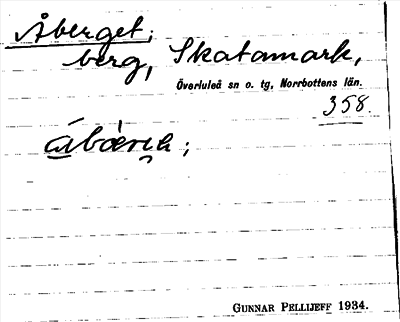 Åberget;
berg, Skatamark,
Överluleå sn o. tg, Norrbottens län.
358.
GUNNAR PELLIJEFF 1934.